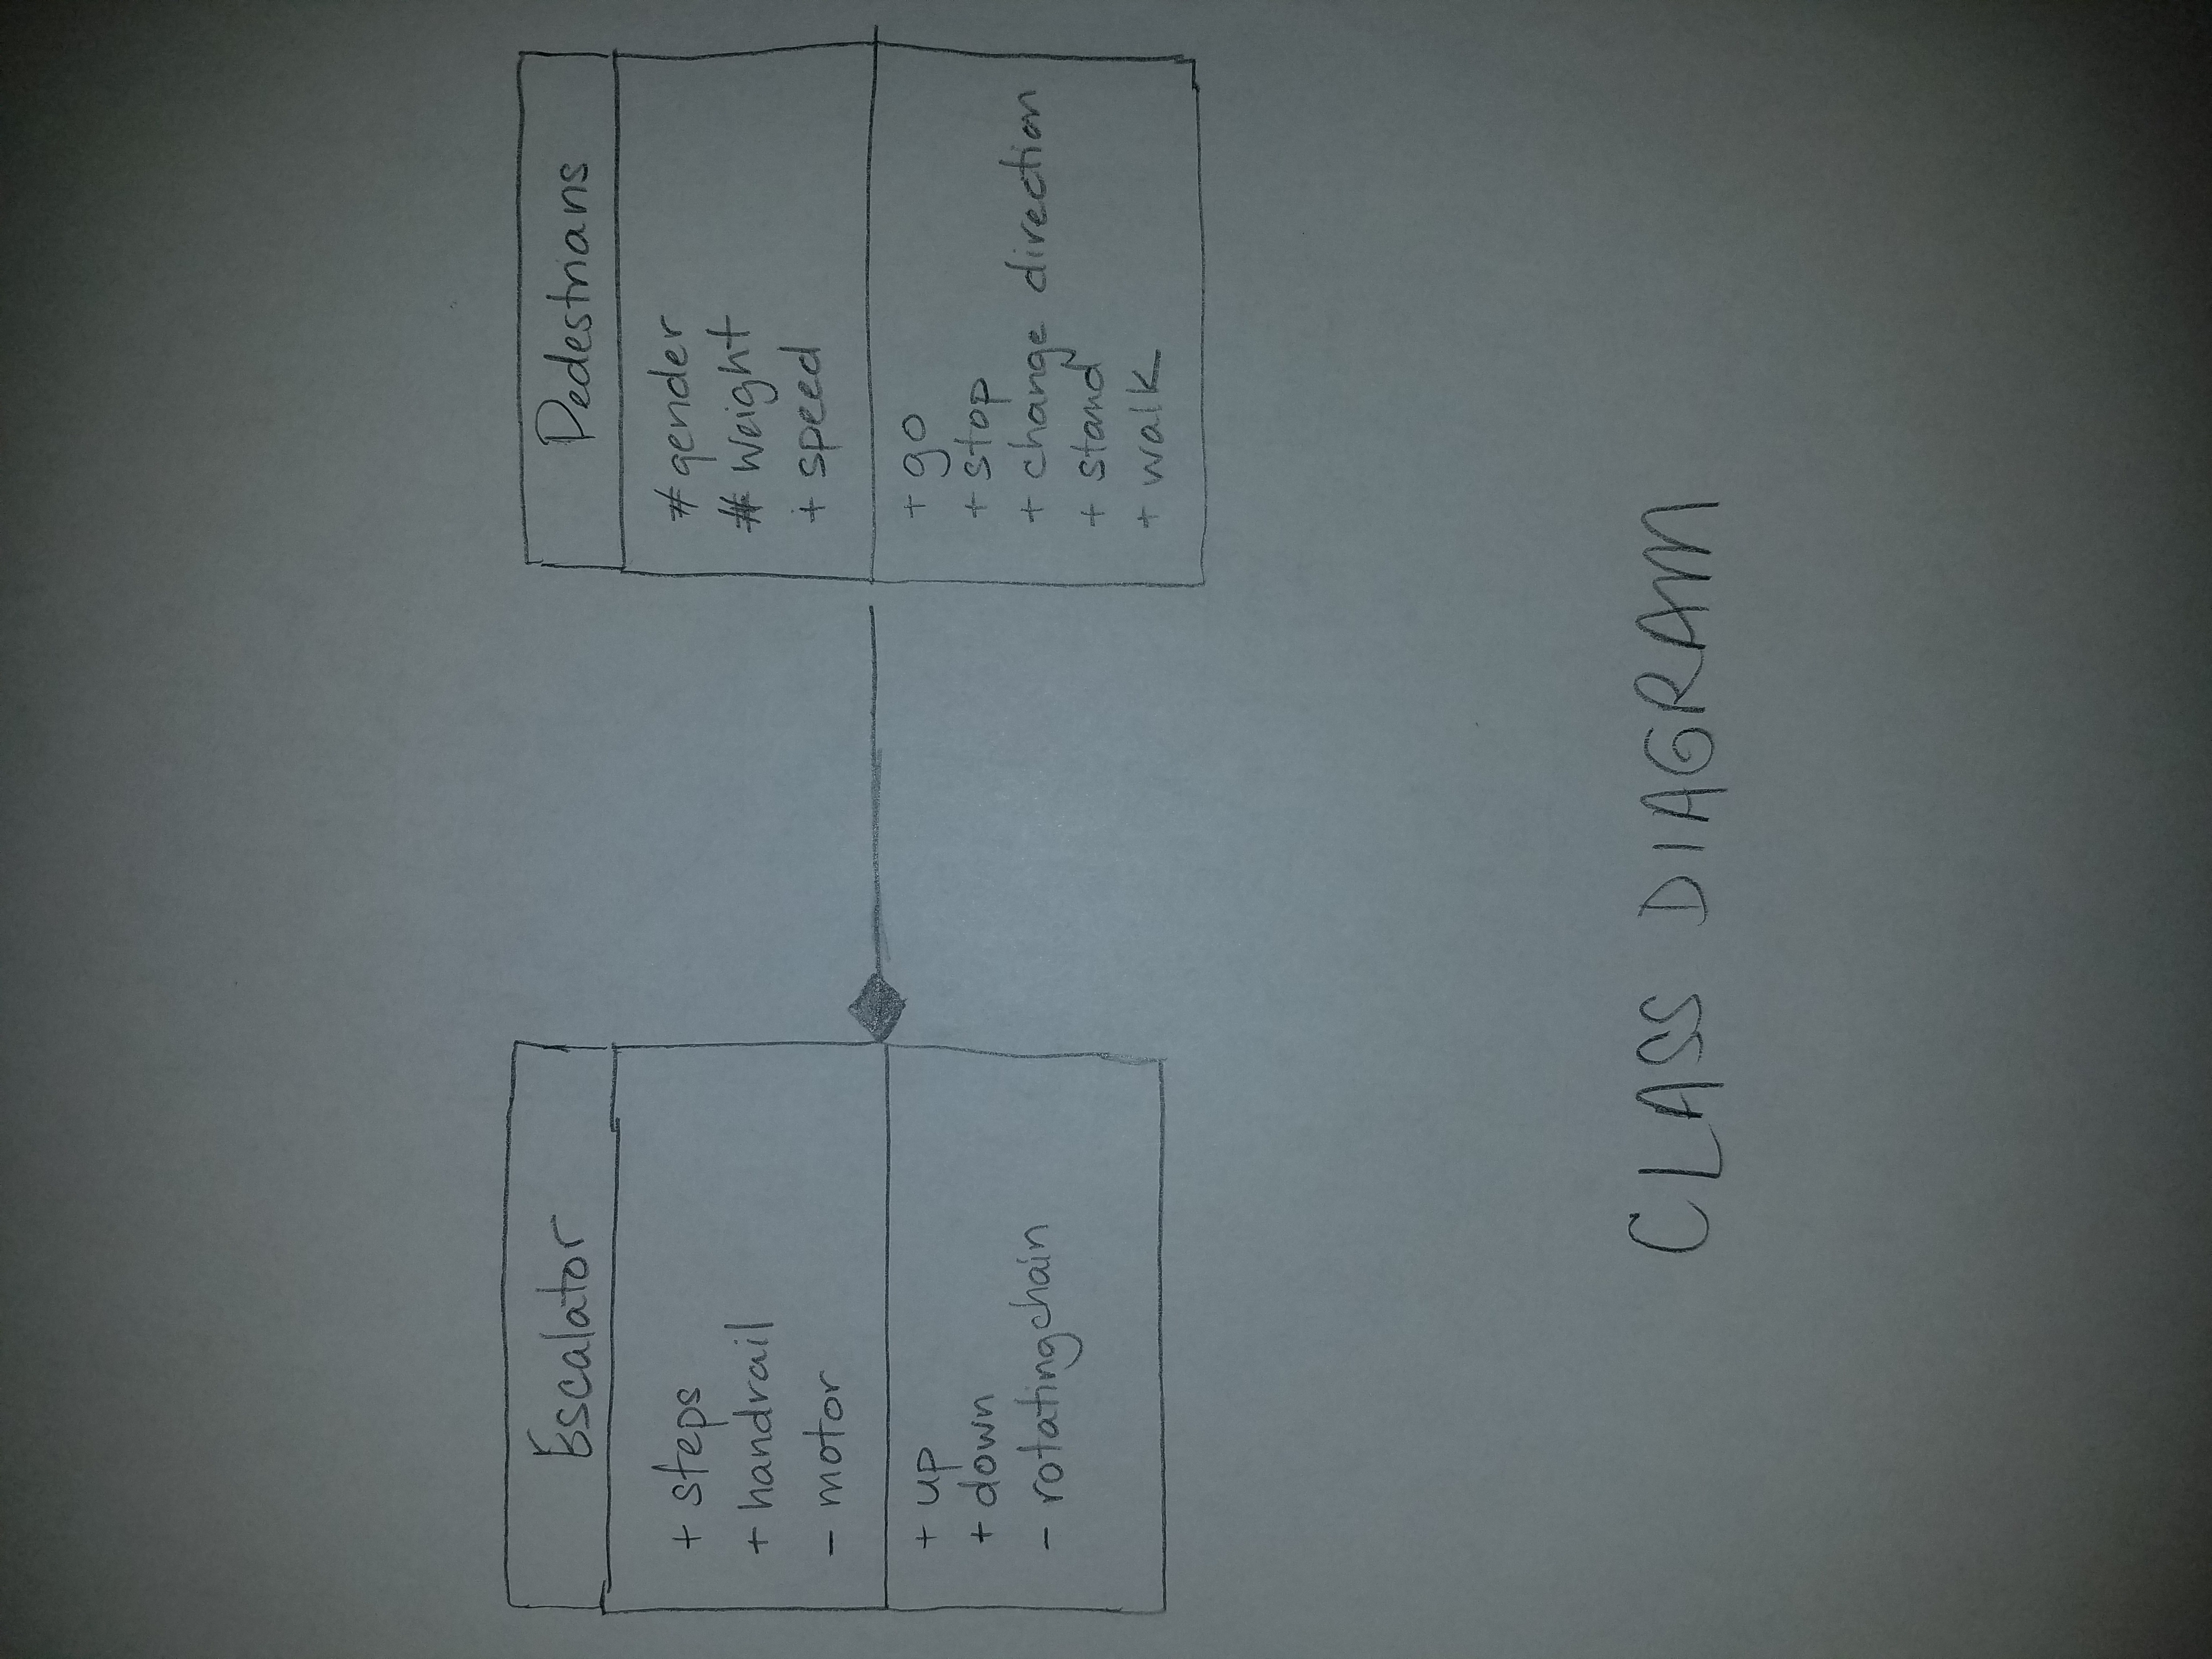 Escalator
+ steps
+ handrail
- motor
+ up
+ down
- rotatingchain
Pedestrians
# gender
# weight
+ speed
+ go
+ stop
+ change direction
+ stand
+ walk
CLASS DIAGRAM